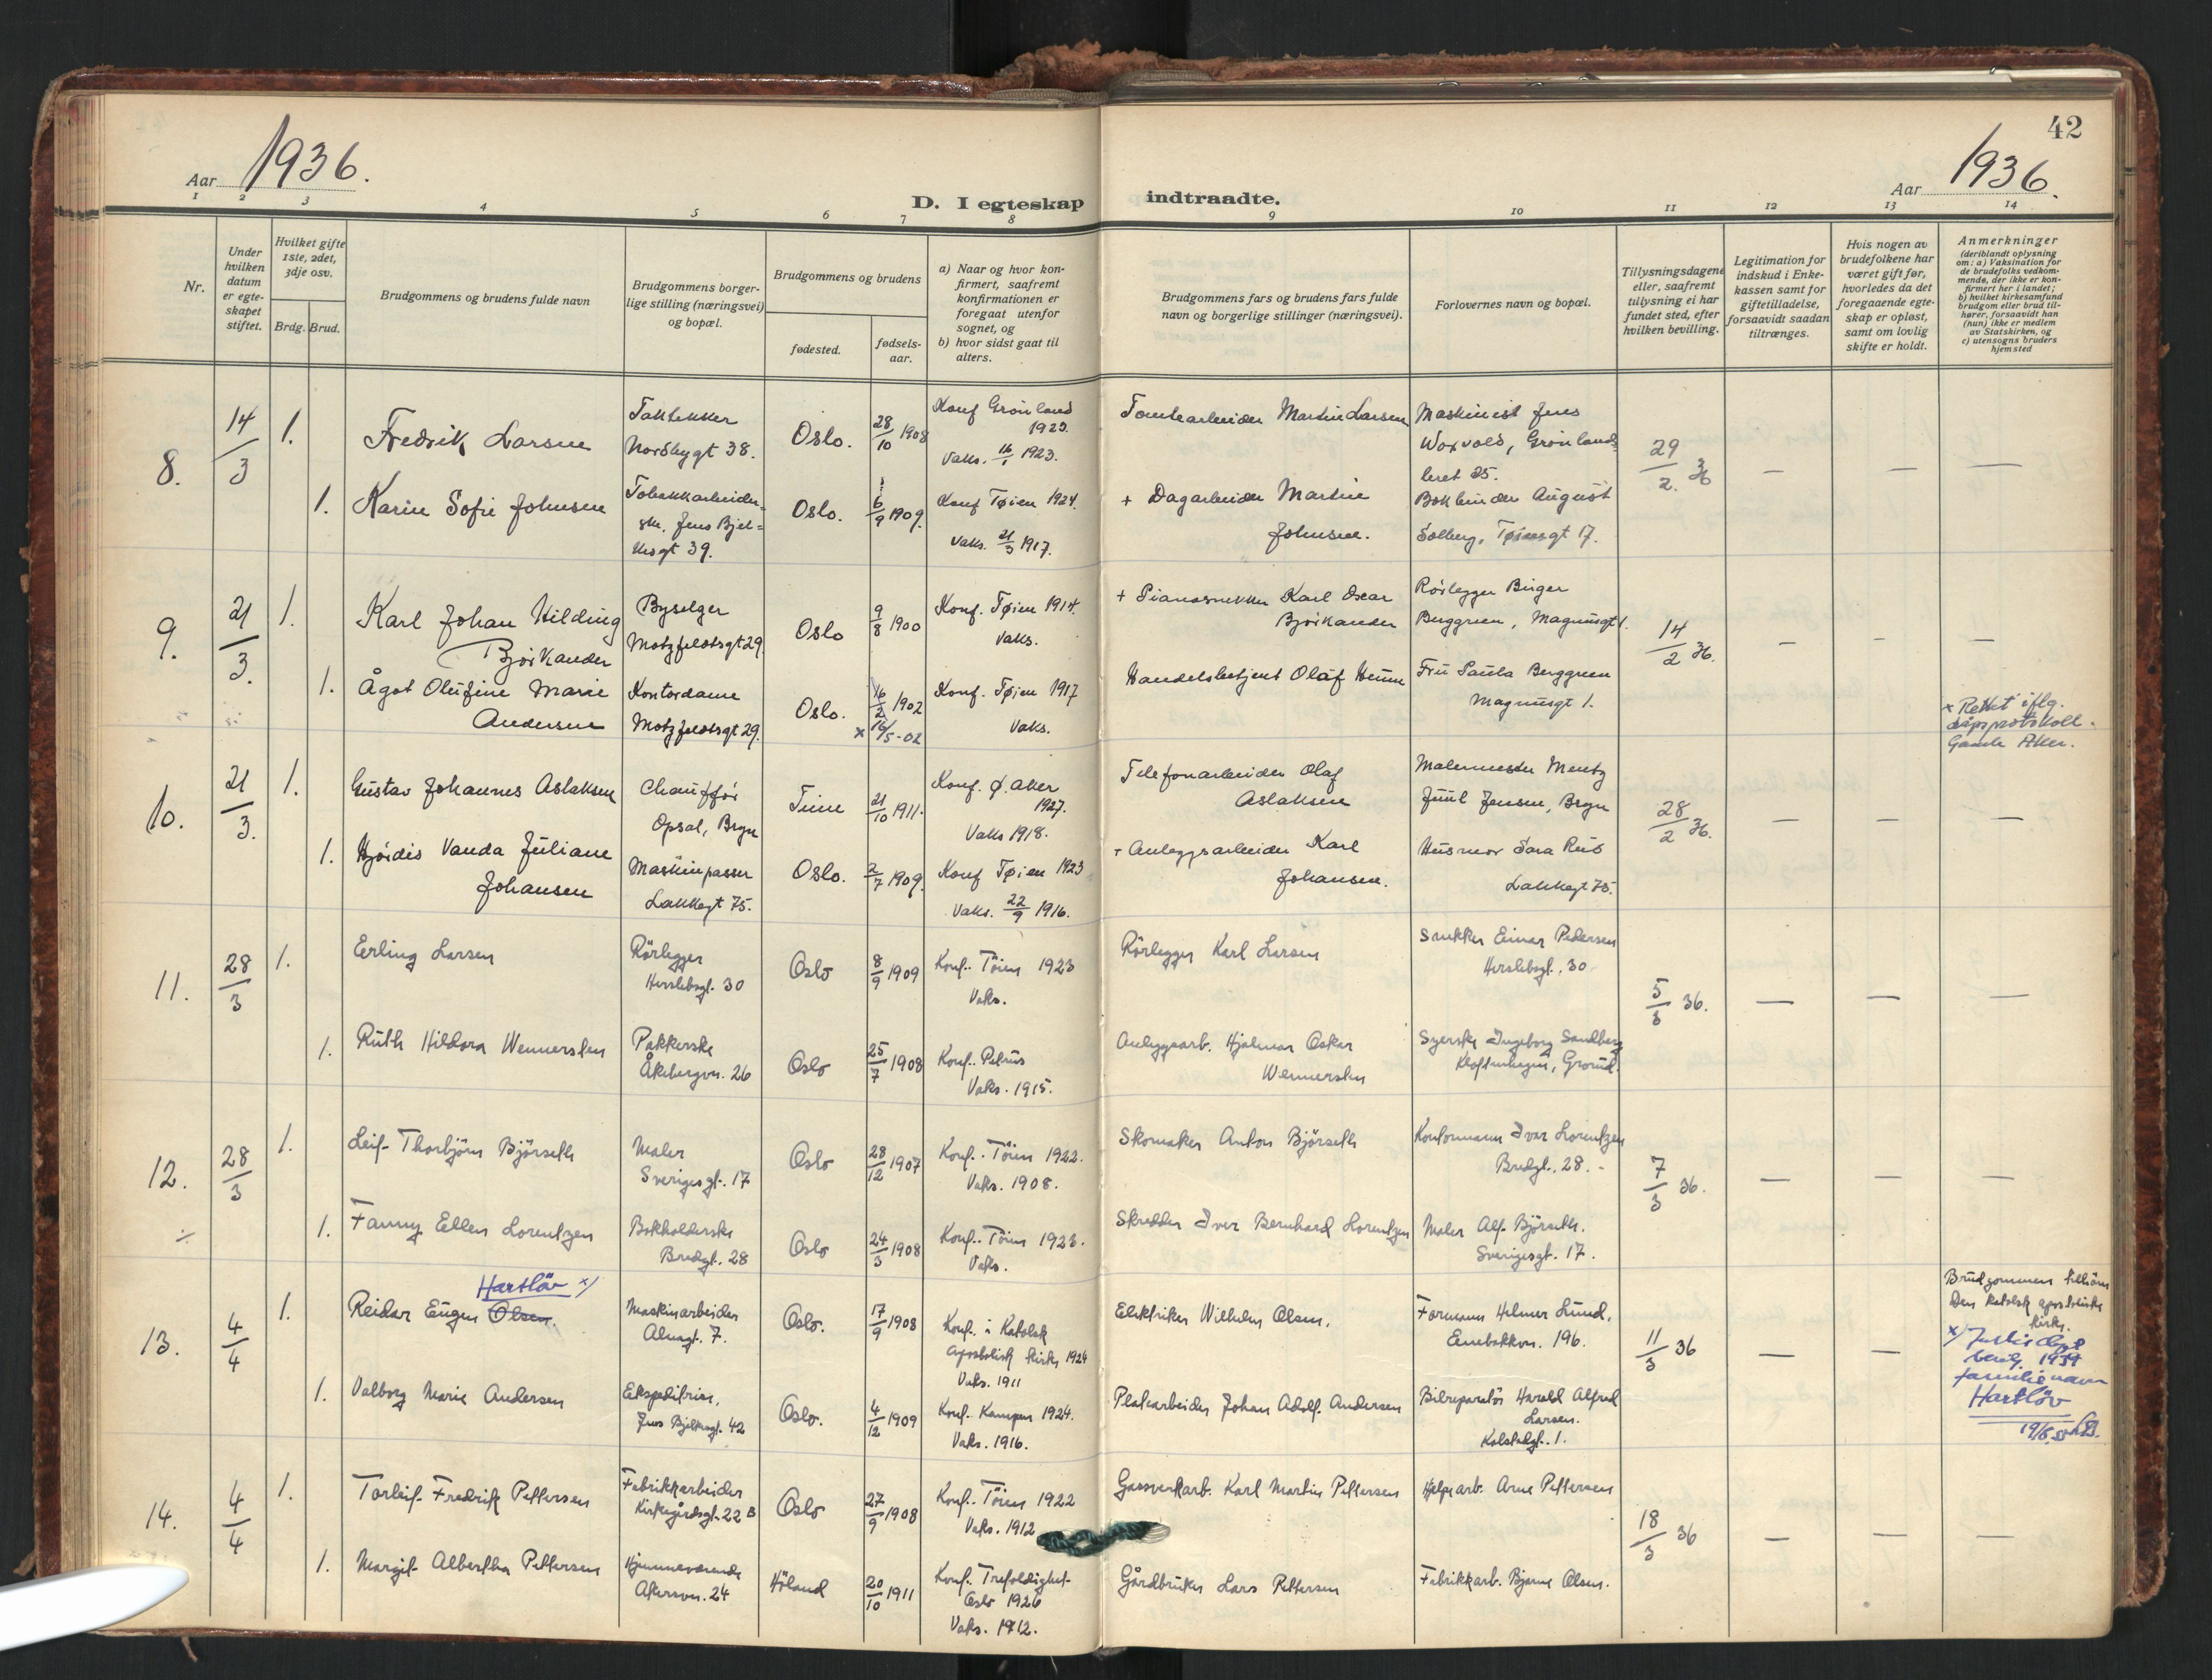 42
Aar 1936.
Aar 1936.
D. I egteskap indtraadte.
1 2 3 4 5 6 7 8 9 10 11 12 13 14
Nr.
Under hvilken datum er egteskapet stiftet.
Hvilket gifte 1ste, 2det, 3dje osv.
Brdg. Brud.
Brudgommens og brudens fulde navn
Brudgommens borgerlige stilling (næringsvei) og bopæl.
Brudgommens og brudens
fødested.
fødselsaar.
a) Naar og hvor konfirmert, saafremt konfirmationen er foregaat utenfor sognet, og
b) hvor sidst gaat til alters.
Brudgommens fars og brudens fars fulde navn og borgerlige stillinger (næringsvei).
Forlovernes navn og bopæl.
Tillysningsdagene eller, saafremt tillysning ei har fundet sted, efter hvilken bevilling.
Legitimation for indskud i Enkekassen samt for giftetilladelse, forsaavidt saadan tiltrænges.
Hvis nogen av brudefolkene har været gift før, hvorledes da det foregaaende egteskap er opløst, samt om lovlig skifte er holdt.
Anmerkninger (deriblandt oplysning om: a) Vaksination for de brudefolks vedkommende, der ikke er konfirmert her i landet; b) hvilket kirkesamfund brudgom eller brud tilhører, forsaavidt han (hun) ikke er medlem av Statskirken, og c) utensogns bruders hjemsted
8. 14/3 1. Fredrik Larsen
Taktekker
Nordbygt 38.
Oslo. 28/10 1908
Konf Grønland
1923.
Vaks. 1923.
Tomtearbeider Martin Larsen
Maskinist Jens
Woxvold, Grønlands
leret 25.
29/2. 36
1. Karin Sofie Johnsen
Tobakkarbeider=
ske, Jens Bjel=
kesgt 39.
Oslo. 6/9 1909.
Konf Tøien 1924.
Vaks. 21/3 1917.
+ Dagarbeider Martin
Johnsen.
Bokbinder August
Solberg, Tøiensgt 17.
9. 21/3. 1. Karl Johan Hilding
Björkander
Byselger
Motzfeldtsgt 29.
Oslo 9/8 1900
Konf. Tøien 1914.
Vaks.
+ Pianosnekker Karl Oscar
Björkander
Rörlegger Birger
Berggreen, Magnusgt 1.
14/2 36.
1. Ågot Olufine Marie
Andersen
Kontordame
Motzfeldtsgt 29.
Oslo. 16/2 1902
x 16/5-02
Konf. Tøien 1917
Vaks.
Handelsbetjent Olaf
Fru Paula Berggreen
Magnusgt 1.
x Rettet iflg.
dåpsprotokoll
Gamle Aker.
10. 21/3. 1. Gustav Johannes Aslaksen
Chauffør
Opsal, Bryn
Time 21/10 1911.
Konf. Ø. Aker
1927.
Vaks 1918.
Telefonarbeider Olaf
Aslaksen
Malermester Mentz
Juul Jensen, Bryn
28/2 36.
1. Hjördis Vanda Juliane
Johansen
Maskinpasser
Lakkegt 75.
Oslo. 2/7 1909.
Konf Tøien 1923
Vaks. 22/9 1916.
+ Anleggsarbeider Karl
Johansen.
Husmor Sara
Lakkegt 75.
11. 28/3 1. Erling Larsen
Rörlegger
Herslebsgt. 30
Oslo 8/9 1909
Konf. Töien 1923
Vaks.
Rörlegger Karl Larsen
Snekker Einar Pedersen
Herslebsgt. 30
5/3 36.
1. Ruth Hildora Wennersten
Pakkerske
Åkebergvn. 26
Oslo 25/7 1908
Konf. Petrus
Vaks. 1915.
Anleggsarb. Hjalmar Oskar
Wennersten
Syerske Ingeborg Sandberg
Grorud.
12. 28/3 1. Leif Thorbjörn Björseth
Maler
Sverigesgt. 17
Oslo 28/12 1907
Konf. Töien 1922.
Vaks. 1908.
Skomaker Anton Björseth
Kontormann Ivar Lorentzen
Bredgt. 28.
7/3 36.
1. Fanny Ellen Lorentzen
Bokholderske
Bredgt. 28
Oslo 24/3 1908
Konf. Töien 1923.
Vaks.
Skredder Iver Bernhard Lorentzen
Maler Alf Björseth.
Sverigesgt. 17.
Hartløv x)
13. 4/4 1. Reidar Eugen Olsen.
Maskinarbeider
Almagt. 7.
Oslo. 17/9 1908
Konf. i Katolsk
Apostolisk kirke 1924
Vaks. 1911
Elektriker Wilhelm Olsen.
Formann Helmer Lund.
Enebakkvn. 196.
11/3 36
Brudgommen tilhører
Den katolsk apostoliske
kirke.
x) Justisdept
bevilg. 1939
familienavn
Hartløv
1. Valborg Marie Andersen
Ekspeditrise,
Jens Bjelkesgt. 42
Oslo. 4/12 1909
Konf. Kampen 1924.
Vaks. 1916.
Platearbeider Johan Adolf Andersen
Bilreparatør Harald Alfred
Larsen.
Kolstadgt. 1.
14. 4/4 1. Torleif Fredrik Pettersen
Fabrikkarbeider
Kirkegårdsgt. 22 B
Oslo 27/9 1908
Konf. Töien 1922
Vaks. 1912
Gassverkarb. Karl Martin Pettersen
Hjelpearb. Arne Pettersen
18/3 36
1. Margit Albertha Pettersen
Hjemmeværende
Akersvn. 24
Höland 20/10 1911
Konf. Trefoldighet
Oslo 1926
Vaks. 1912.
Gårdbruker Lars Pettersen
Fabrikkarb. Bjarne Olsen.